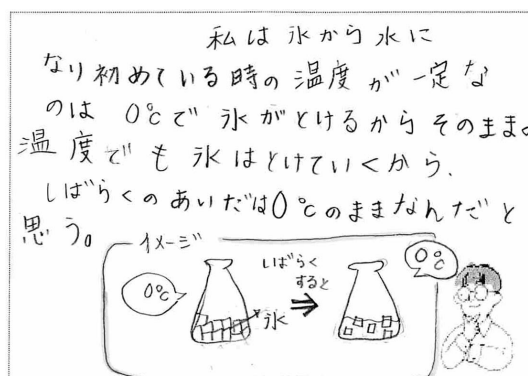 私は氷から水に
なり初めている時の温度が一定な
のは0℃で氷がとけるからそのまま。
温度でも氷はとけていくから、
しばらくのあいだは0℃のままなんだと
思う。
イメージ
0℃
氷
しばらく
すると
0℃